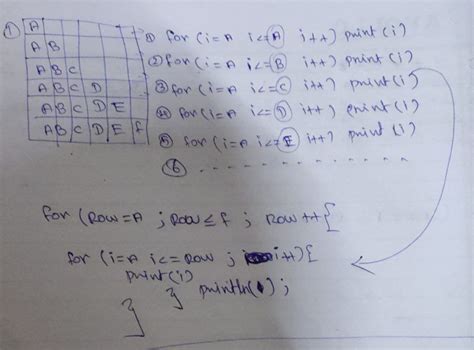 ① A
A B
A B C
A B C D
A B C D E
A B C D E f
① for (i=A i<=A i++) print (i)
② for (i=A i<=B i++) print (i)
③ for (i=A i<=C i++) print (i)
④ for (i=A i<=D i++) print (i)
⑤ for (i=A i<=E i++) print (i)
⑥ - - - - - - - - - - - - -
for (Row=A ; Row≤f ; Row++{
for (i=A i<=Row ; i++){
print(i)
} println( );
}